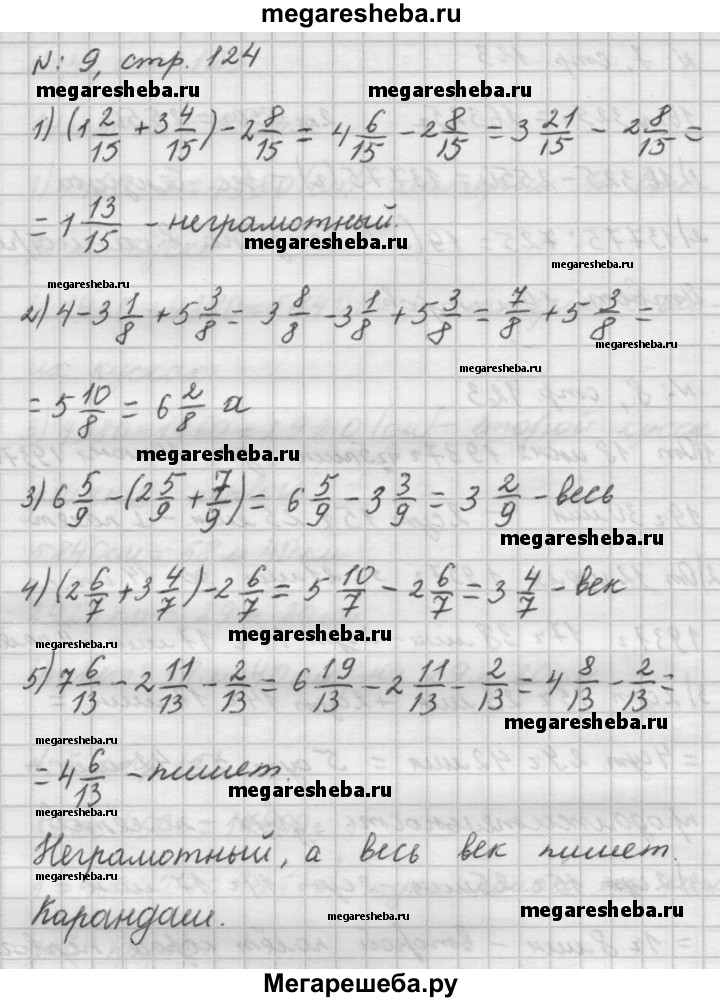 megaresheba.ru
№: 9, стр. 124
megaresheba.ru megaresheba.ru
1) (1 2/15 + 3 4/15) - 2 8/15 = 4 6/15 - 2 8/15 = 3 21/15 - 2 8/15 =
= 1 13/15 - неграмотный.
megaresheba.ru
megaresheba.ru
megaresheba.ru
2) 4 - 3 1/8 + 5 3/8 = 3 8/8 - 3 1/8 + 5 3/8 = 7/8 + 5 3/8 =
megaresheba.ru
megaresheba.ru
= 5 10/8 = 6 2/8 а
megaresheba.ru
3) 6 5/9 - (2 5/9 + 7/9) = 6 5/9 - 3 3/9 = 3 2/9 - весь
megaresheba.ru
4) (2 6/7 + 3 4/7) - 2 6/7 = 5 10/7 - 2 6/7 = 3 4/7 - век
megaresheba.ru
megaresheba.ru
5) 7 6/13 - 2 11/13 - 2/13 = 6 19/13 - 2 11/13 - 2/13 = 4 8/13 - 2/13 =
megaresheba.ru
megaresheba.ru
= 4 6/13 - пишет.
megaresheba.ru
Неграмотный, а весь век пишет.
megaresheba.ru
Карандаш.
megaresheba.ru megaresheba.ru
Мегарешеба.ру